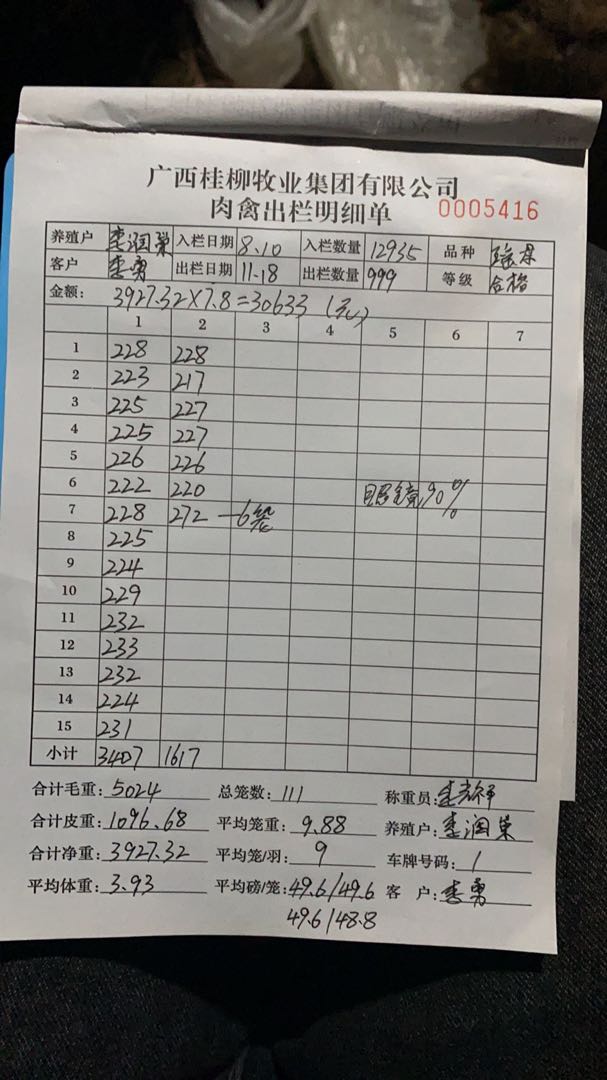 广西桂柳牧业集团有限公司
肉禽出栏明细单 0005416
养殖户 李润 入栏日期 8.10 入栏数量 12935 品种
客户 李勇 出栏日期 11.18 出栏数量 999 等级 合格
金额: 3927.32×7.8=30633 (元)
1 2 3 4 5 6 7
1 228 228
2 223 217
3 225 227
4 225 227
5 226 226
6 222 220 眼镜90%
7 228 272 —6笼
8 225
9 224
10 229
11 232
12 233
13 232
14 224
15 231
小计 3407 1617
合计毛重: 5024 总笼数: 111 称重员: 李
合计皮重: 1096.68 平均笼重: 9.88 养殖户: 李润
合计净重: 3927.32 平均笼/羽: 9 车牌号码: 1
平均体重: 3.93 平均磅/笼: 49.6/49.6 客 户: 李勇
49.6/48.8